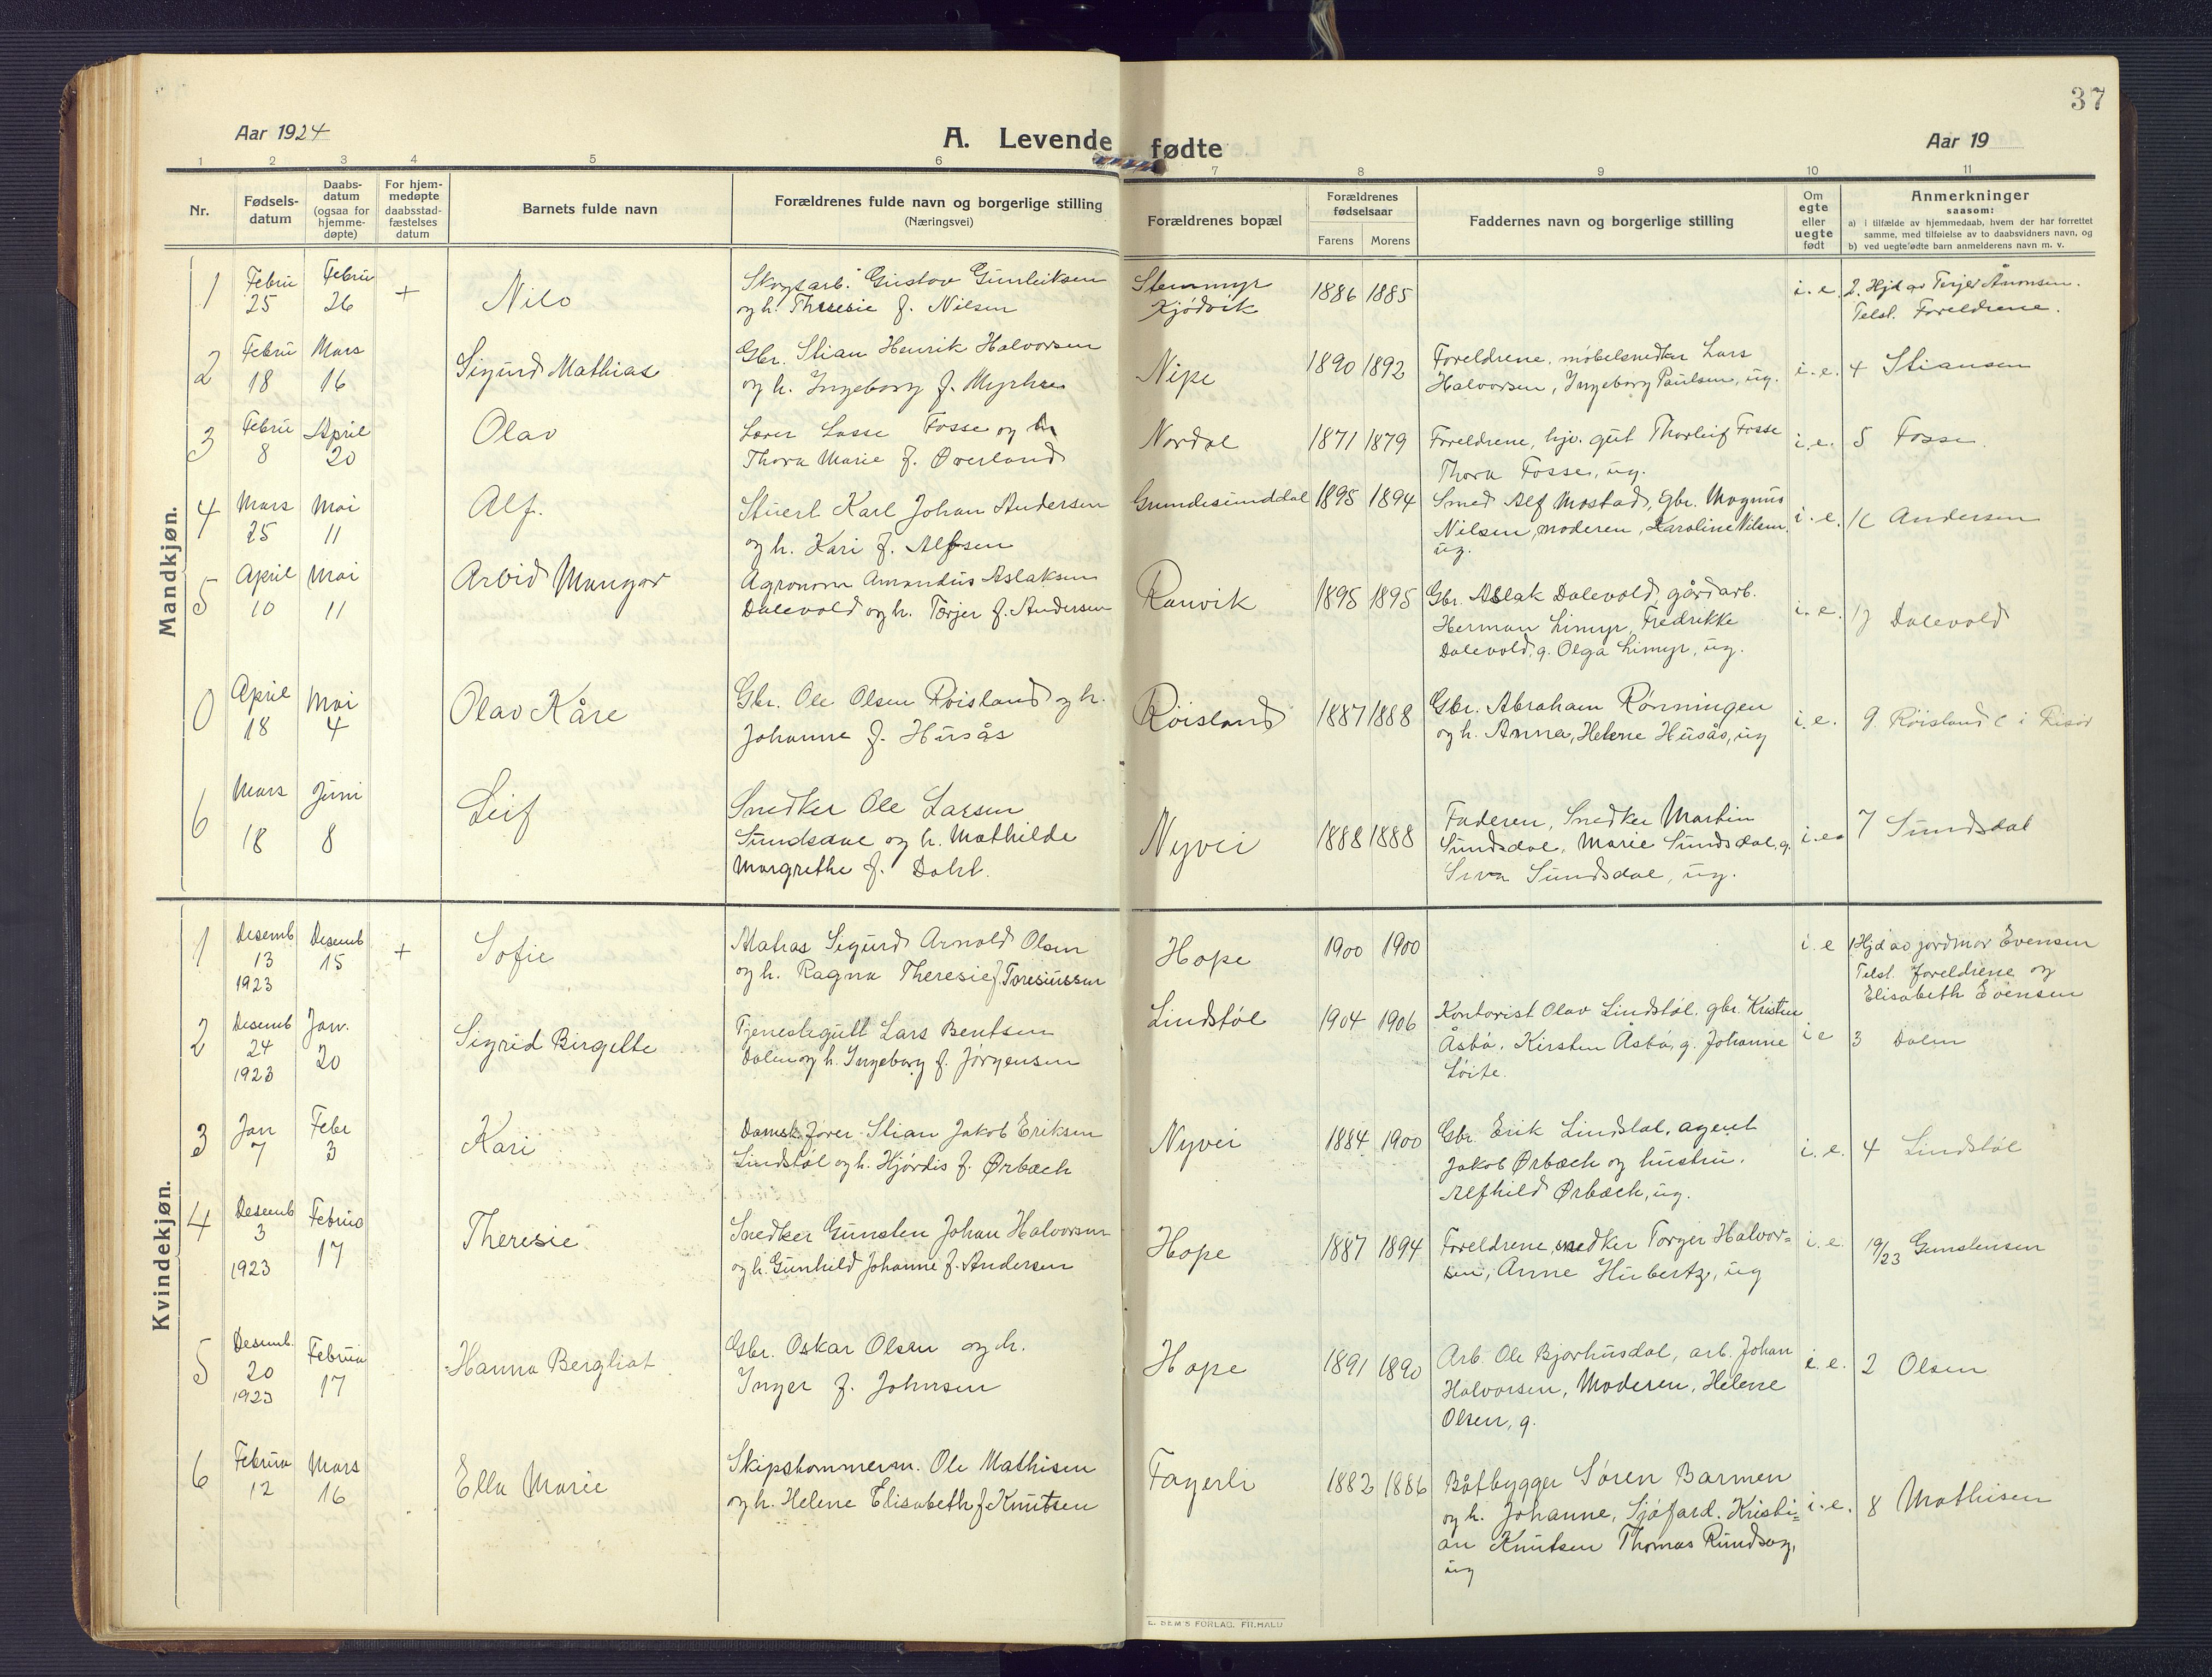 37
Aar 1924
A. Levende fødte
Aar 19
1 2 3 4 5 6 7 8 9 10 11
Nr.
Fødsels-
datum
Daabs-
datum
(ogsaa for
hjemme-
døpte)
For hjem-
medøpte
daabsstad-
fæstelses
datum
Barnets fulde navn
Forældrenes fulde navn og borgerlige stilling
(Næringsvei)
Forældrenes bopæl
Forældrenes
fødselsaar
Farens Morens
Faddernes navn og borgerlige stilling
Om
egte
eller
uegte
født
Anmerkninger
saasom:
a) i tilfælde av hjemmedaab, hvem der har forrettet
samme, med tilføielse av to daabsvidners navn, og
b) ved uegte fødte barn anmelderens navn m. v.
Mandkjøn.
1 Febru 25 Febru 26 + Nils
Skogsarb. Gustav Gunleiksen
og h. Theresie f. Nilsen
Stemmyr
Kjødvik
1886 1885
i. e. 2. Hjd av Terjer Ånonsen.
Telst. Foreldrene.
2 Febru 18 Mars 16 Sigurd Mathias
Gbr. Stian Henrik Halvorsen
og h. Ingeborg f. Myhre
Nipe
1890 1892
Foreldrene, møbelsnedker Lars
Halvorsen, Ingeborg Paulsen, ug.
i. e. 4 Stiansen
3 Febru 8 April 20 Olav
Lærer Lasse Fosse og h
Thora Marie f. Øverland
Nordal
1871 1879
Foreldrene, hjv. gut Thorleif Fosse
Thora Fosse, ug.
i. e. 5 Fosse.
4 Mars 25 Mai 11 Alf.
Stuert Karl Johan Andersen
og h. Kari f. Alfsen
Grundesunddal
1895 1894
Smed Alf Mostad, gbr. Magnus
Nilsen, moderen, Karoline Nilsen,
ug.
i. e. Andersen
5 April 10 Mai 11 Arvid Mangor
Agronom Amandus Aslaksen
Dalevold og h. Terjer f. Andersen
Ranvik
1895 1895
Gbr. Aslak Dalevold, gårdarb.
Herman Limyr, Fredrikke
Dalevold, g. Olga Limyr, ug.
i. e. 17 Dalevold
0 April 18 Mai 4 Olav Kåre
Gbr. Ole Olsen Røisland og h.
Johanne f. Husås
Røisland
1887 1888
Gbr. Abraham Rønningen
og h. Anna, Helene Husås, ug
i. e. 9 Røisland i Risør
6 Mars 18 Juni 8 Leif
Snedker Ole Larsen
Sundsdal og h. Mathilde
Margrethe f. Dahl.
Nyvei
1888 1888
Faderen, Snedker Martin
Sundsdal, Marie Sundsdal, g.
Siva Sundsdal, ug.
i. e. 7 Sundsdal
Kvindekjøn.
1 Desemb 13 1923 Desemb 15 + Sofie
Matros Sigurd Arnold Olsen
og h. Ragna Theresie f. Toresiussen
Hope
1900 1900
i. e 1 Hjd av jordmor Evensen
Telst. foreldrene og
Elisabeth Evensen
2 Desemb 24 1923 Jan. 20 Sigrid Birgitte
Tjenestegutt Lars Bentsen
Dalen og h. Ingeborg f. Jørgensen
Lindstøl
1904 1906
Kontorist Olav Lindstøl, gbr. Kristen
Åsbø, Kirsten Åsbø, g. Johanne
Løite.
i e 3 Dalen
3 Jan 7 Febr 3 Kari
Damsk.fører Stian Jakob Eriksen
Lindstøl og h. Hjørdis f. Ørbæch
Nyvei
1884 1900
Gbr. Erik Lindstøl, agent
Jakob Ørbæch og hustru,
Alfhild Ørbæch, ug.
i. e. 4 Lindstøl
4 Desemb 3 1923 Februa 17 Theresie
Snedker Gunsten Johan Halvorsen
og h. Gunhild Johanne f. Andersen
Hope
1887 1894
Foreldrene, snedker Torger Halvor=
sen, Anne Hubertz, ug
i. e. 19/23 Gunstensen
5 Desemb. 20 1923 Februa 17 Hanna Bergliot
Gbr. Oskar Olsen og h.
Inger f. Johnsen
Hope
1891 1890
Arb. Ole Bjorhusdal, arb. Johan
Halvorsen, Moderen, Helene
Olsen, g.
i. e. 2 Olsen
6 Februa 12 Mars 16 Ella Marie
Skipstømmerm. Ole Mathisen
og h. Helene Elisabeth f. Knutsen
Fagerli
1882 1886
Båtbygger Søren Barmen
og h. Johanne, Sjøfard. Kristi=
an Knutsen Thomas Rundsag,
ug
i. e. 8 Mathisen
E. SEM'S FORLAG, FR.HALD